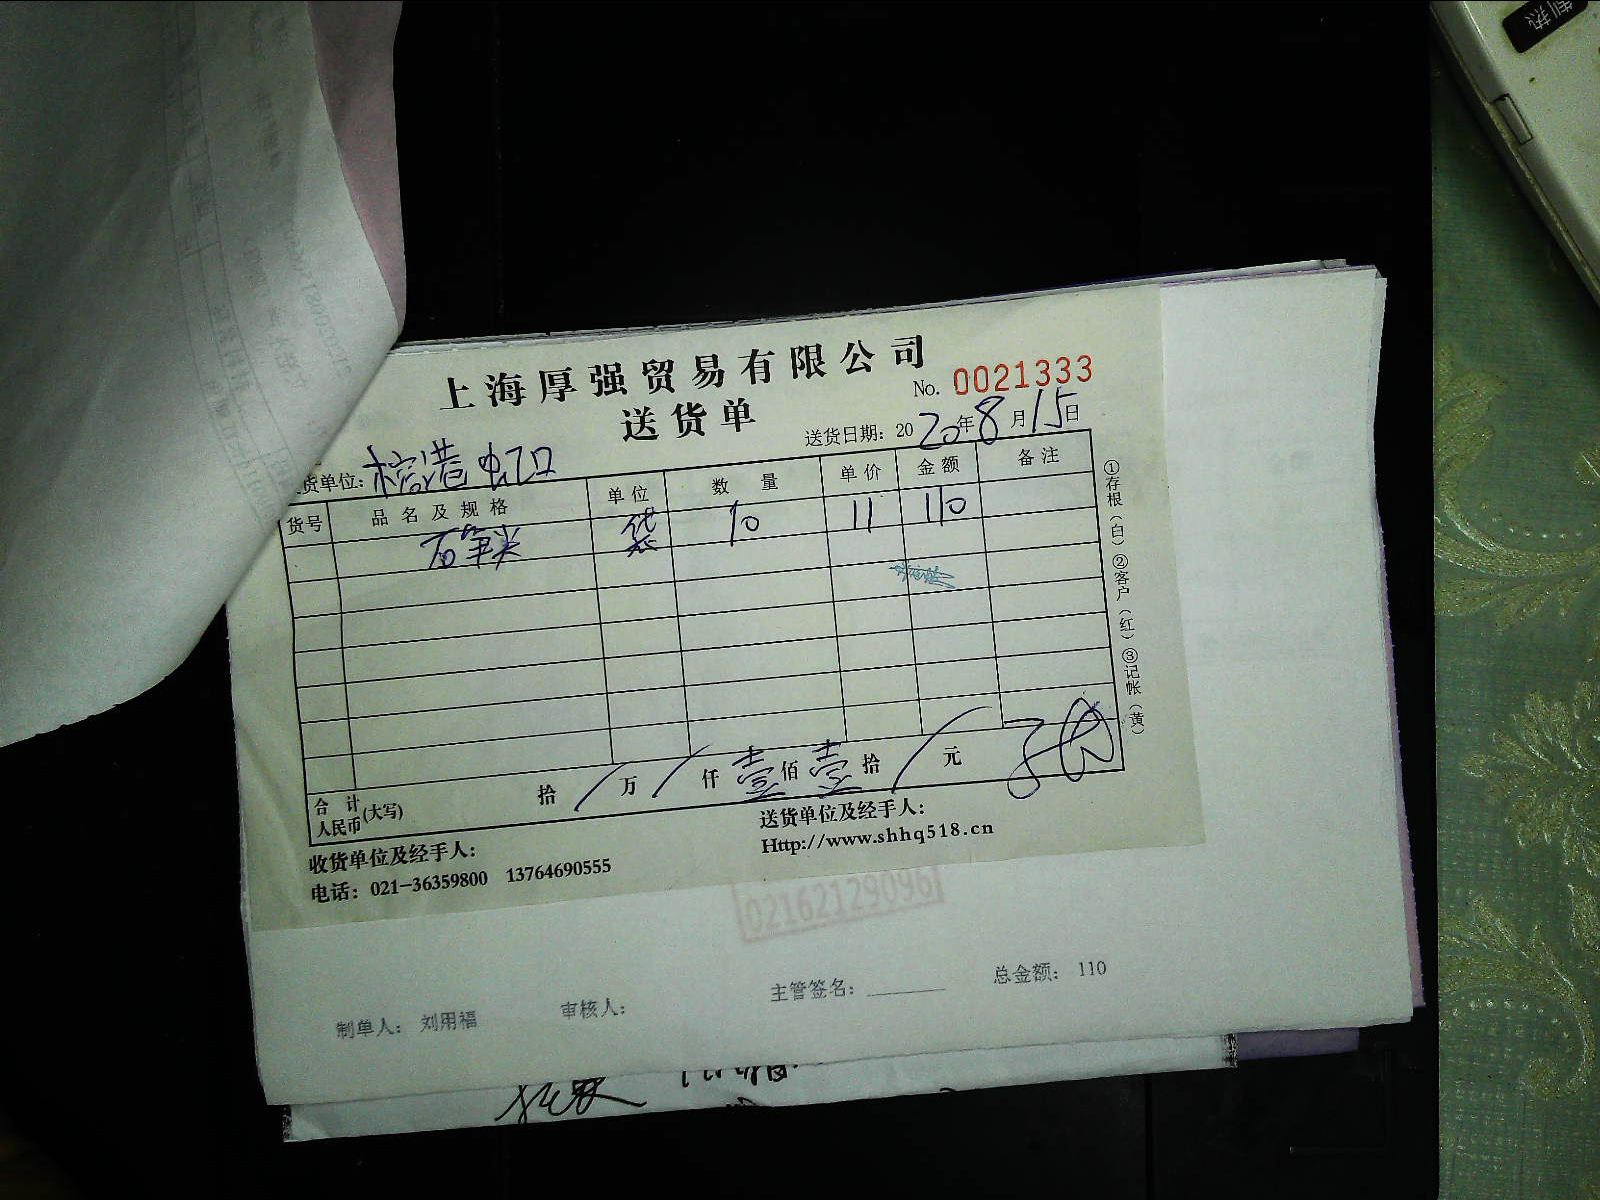 上海厚强贸易有限公司
送货单
No. 0021333
送货日期：2020年8月15日
货单位：榕港虹口
货号 品名及规格 单位 数量 单价 金额 备注
石笔尖 袋 10 11 110
合计人民币(大写) 拾/万/仟壹佰壹拾/元
收货单位及经手人：
送货单位及经手人：
电话：021-36359800 13764690555
Http://www.shhq518.cn
①存根（白）②客户（红）③记帐（黄）
02162129096
制单人： 刘用福 审核人： 主管签名：________ 总金额： 110
制热